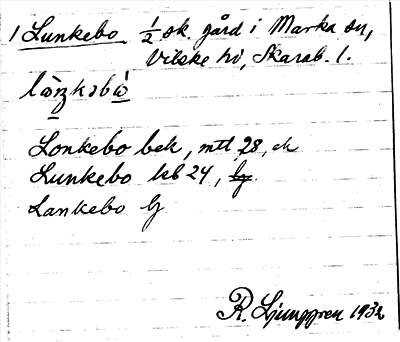 1 Lunkebo 1/2 sk. gård i Marka sn,
Vilske hd, Skarab. l.
Lonkebo bek, mtl 28, ek
Lunkebo kb 24,
Lankebo bj
R. Ljunggren 1932